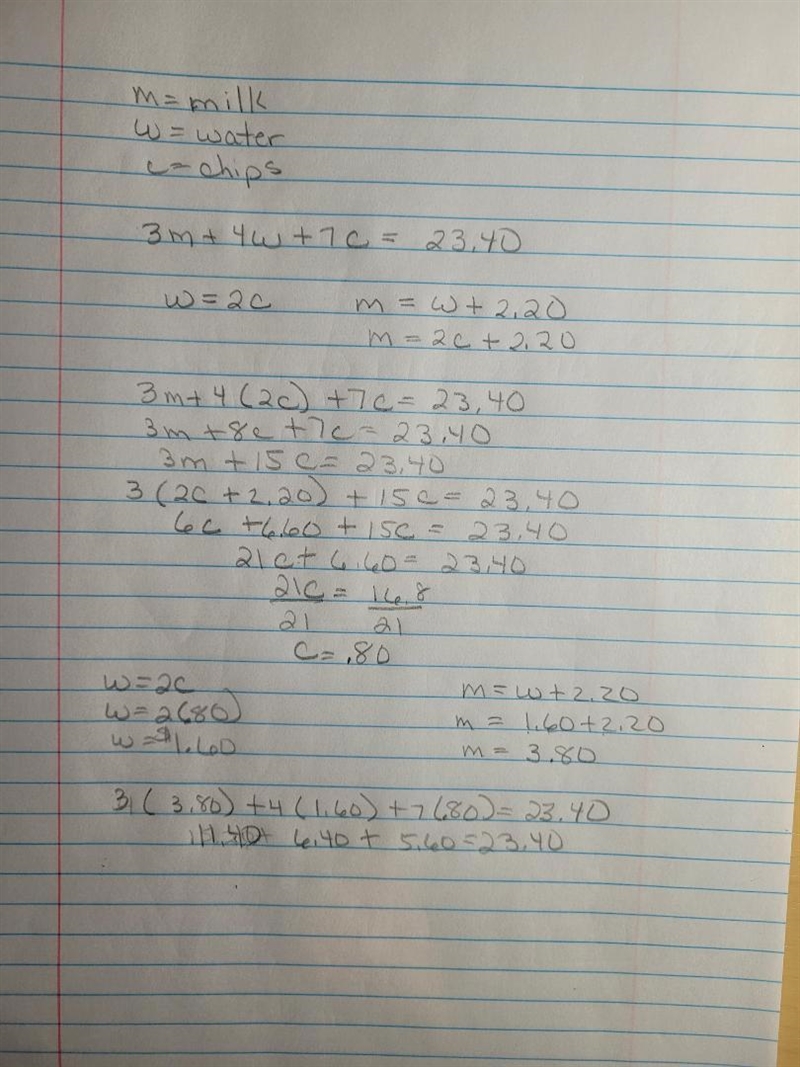 m = milk
w = water
c = chips
3m + 4w + 7c = 23.40
w = 2c m = w + 2.20
m = 2c + 2.20
3m + 4(2c) + 7c = 23.40
3m + 8c + 7c = 23.40
3m + 15c = 23.40
3(2c + 2.20) + 15c = 23.40
6c + 6.60 + 15c = 23.40
21c + 6.60 = 23.40
21c = 16.8
21 21
c = .80
w = 2c m = w + 2.20
w = 2(.80) m = 1.60 + 2.20
w = $1.60 m = 3.80
3(3.80) + 4(1.60) + 7(.80) = 23.40
11.40 + 6.40 + 5.60 = 23.40